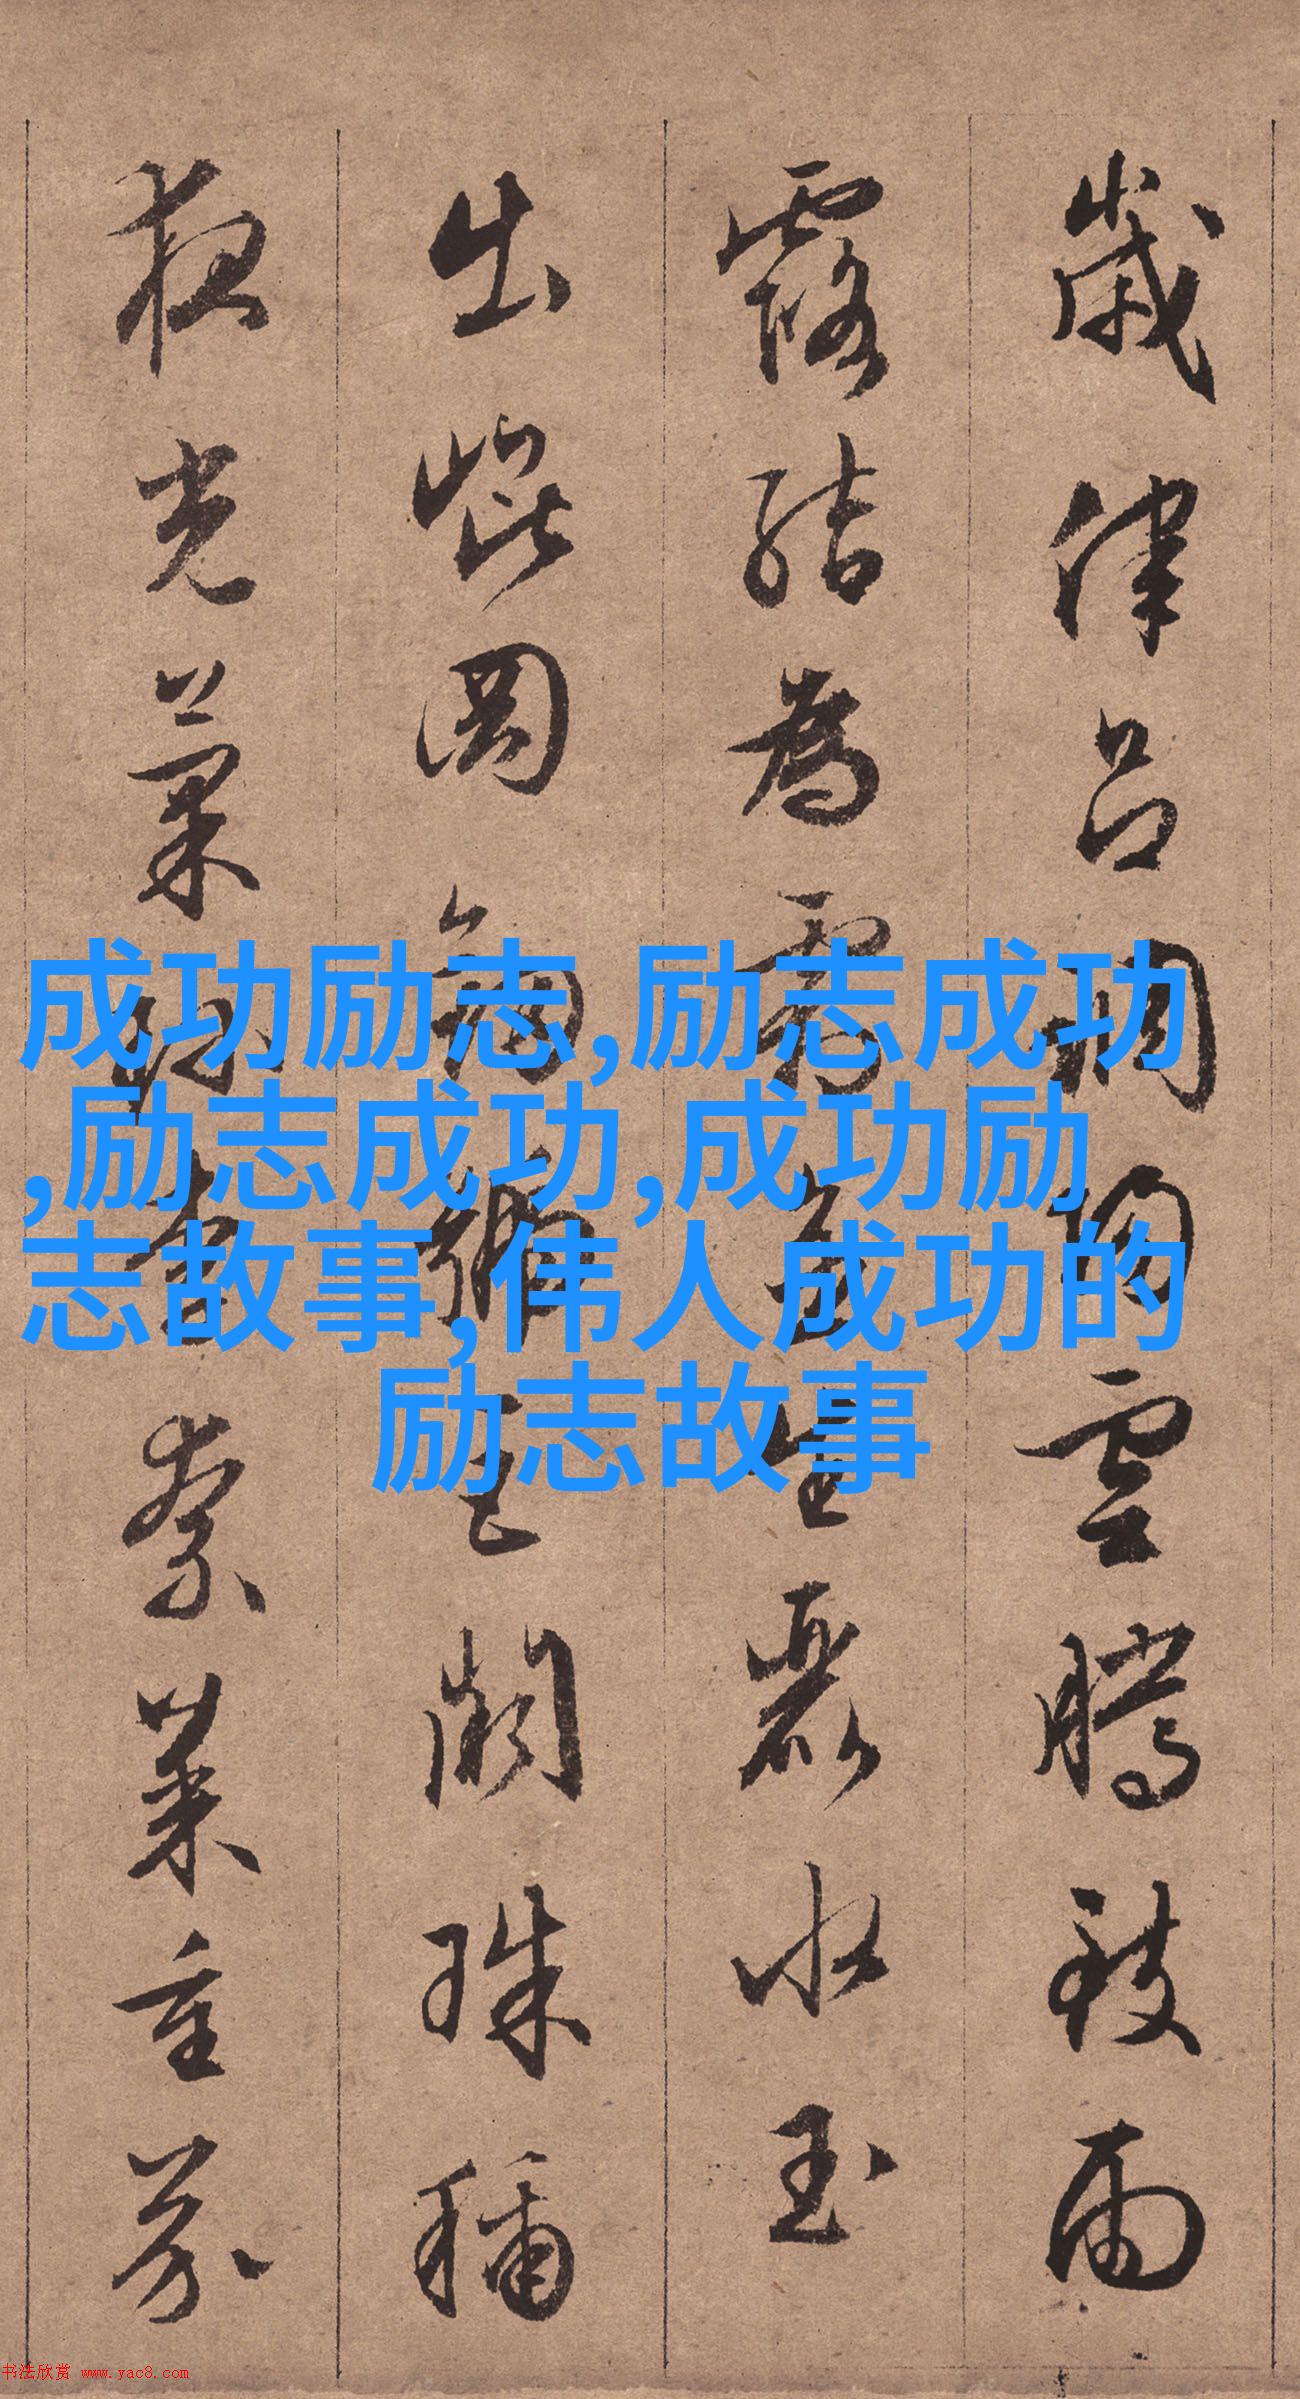 歲律呂調陽雲騰致雨
露結為霜金生麗水玉
出崐岡劍號巨闕珠稱
夜光菓珍李柰菜重芥
成功励志,励志成功
,励志成功,成功励
志故事,伟人成功的
励志故事
书法欣赏 www.yac8.com